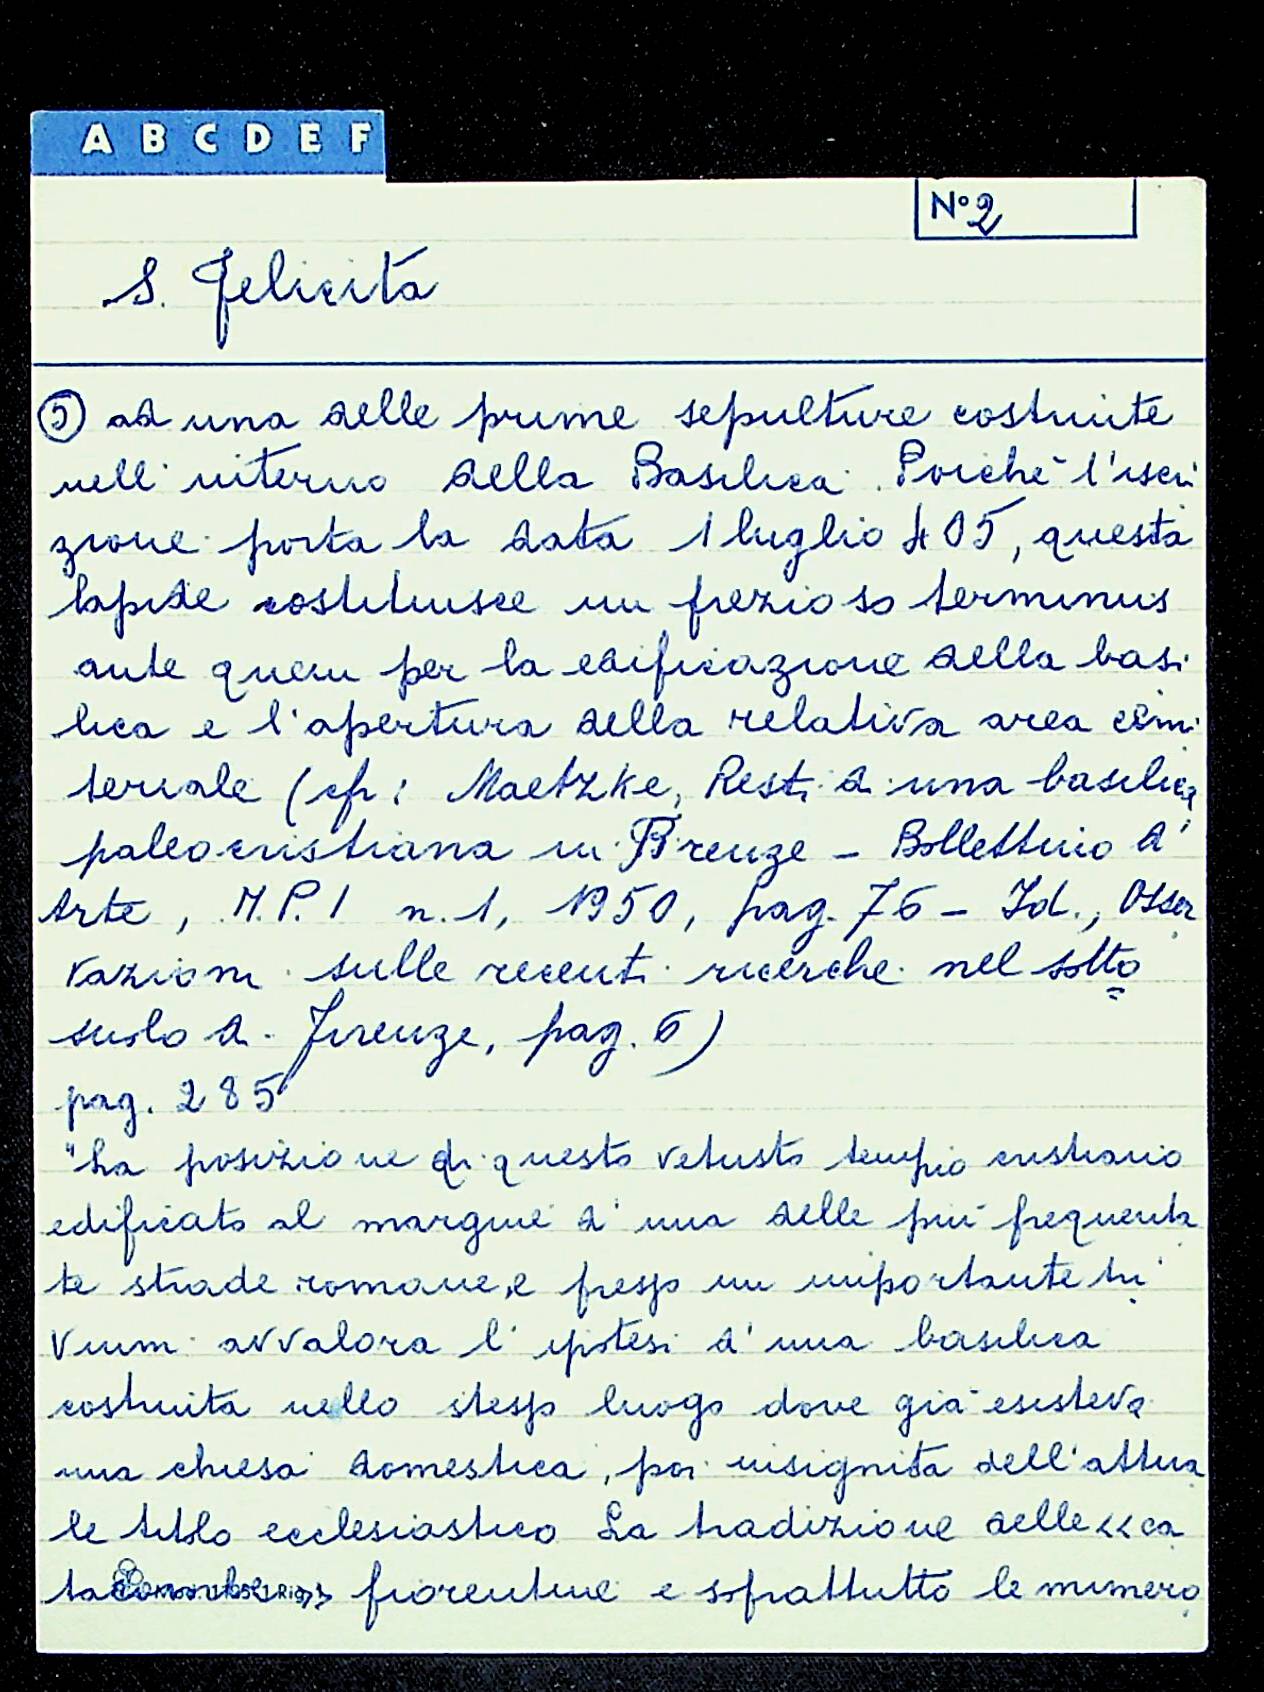 A B C D E F
N° 2
S. Felicita
⑤ ad una delle prime sepolture costruite
nell'interno della Basilica. Poiché l'iscri
zione porta la data 1 luglio 405, questa
lapide costituisce un prezioso terminus
ante quem per la edificazione della basi
lica e l'apertura della relativa area cimi
teriale (cfr: Maetzke, Resti di una basilica
paleocristiana in Firenze - Bollettino d'
Arte, M.P.I n. 1, 1950, pag. 76 - Id., Osser
vazioni sulle recenti ricerche nel sotto
suolo di Firenze, pag. 6)
pag. 285
"La posizione di questo vetusto tempio cristiano
edificato al margine d'una delle più frequenta
te strade romane, e presso un importante tri
vium avvalora l'ipotesi d'una basilica
costruita nello stesso luogo dove già esisteva
una chiesa domestica, poi insignita dell'attua
le titolo ecclesiastico La tradizione delle <<ca
tacombe>> fiorentine e soprattutto le numero